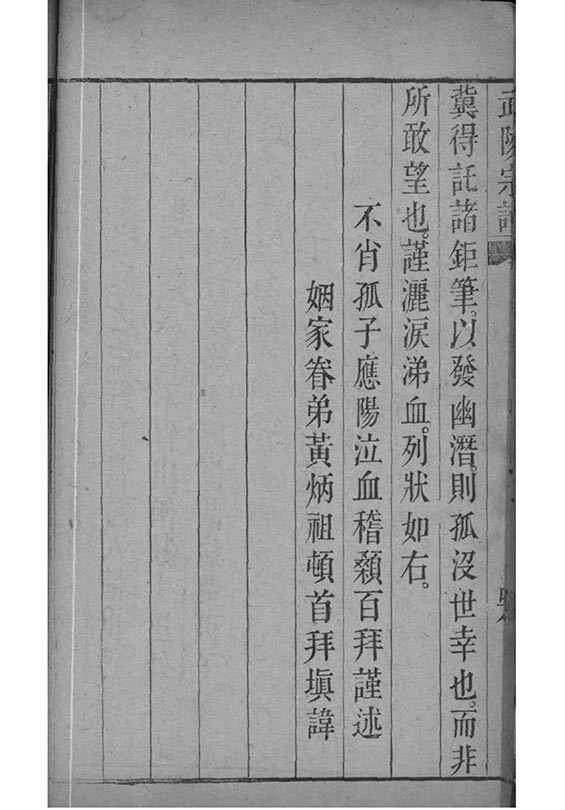 武陵宗譜
冀得託諸鉅筆。以發幽潛。則孤沒世幸也。而非
所敢望也。謹灑淚涕血。列狀如右。
不肖孤子應陽泣血稽顙百拜謹述
姻家眷弟黃炳祖頓首拜塡諱